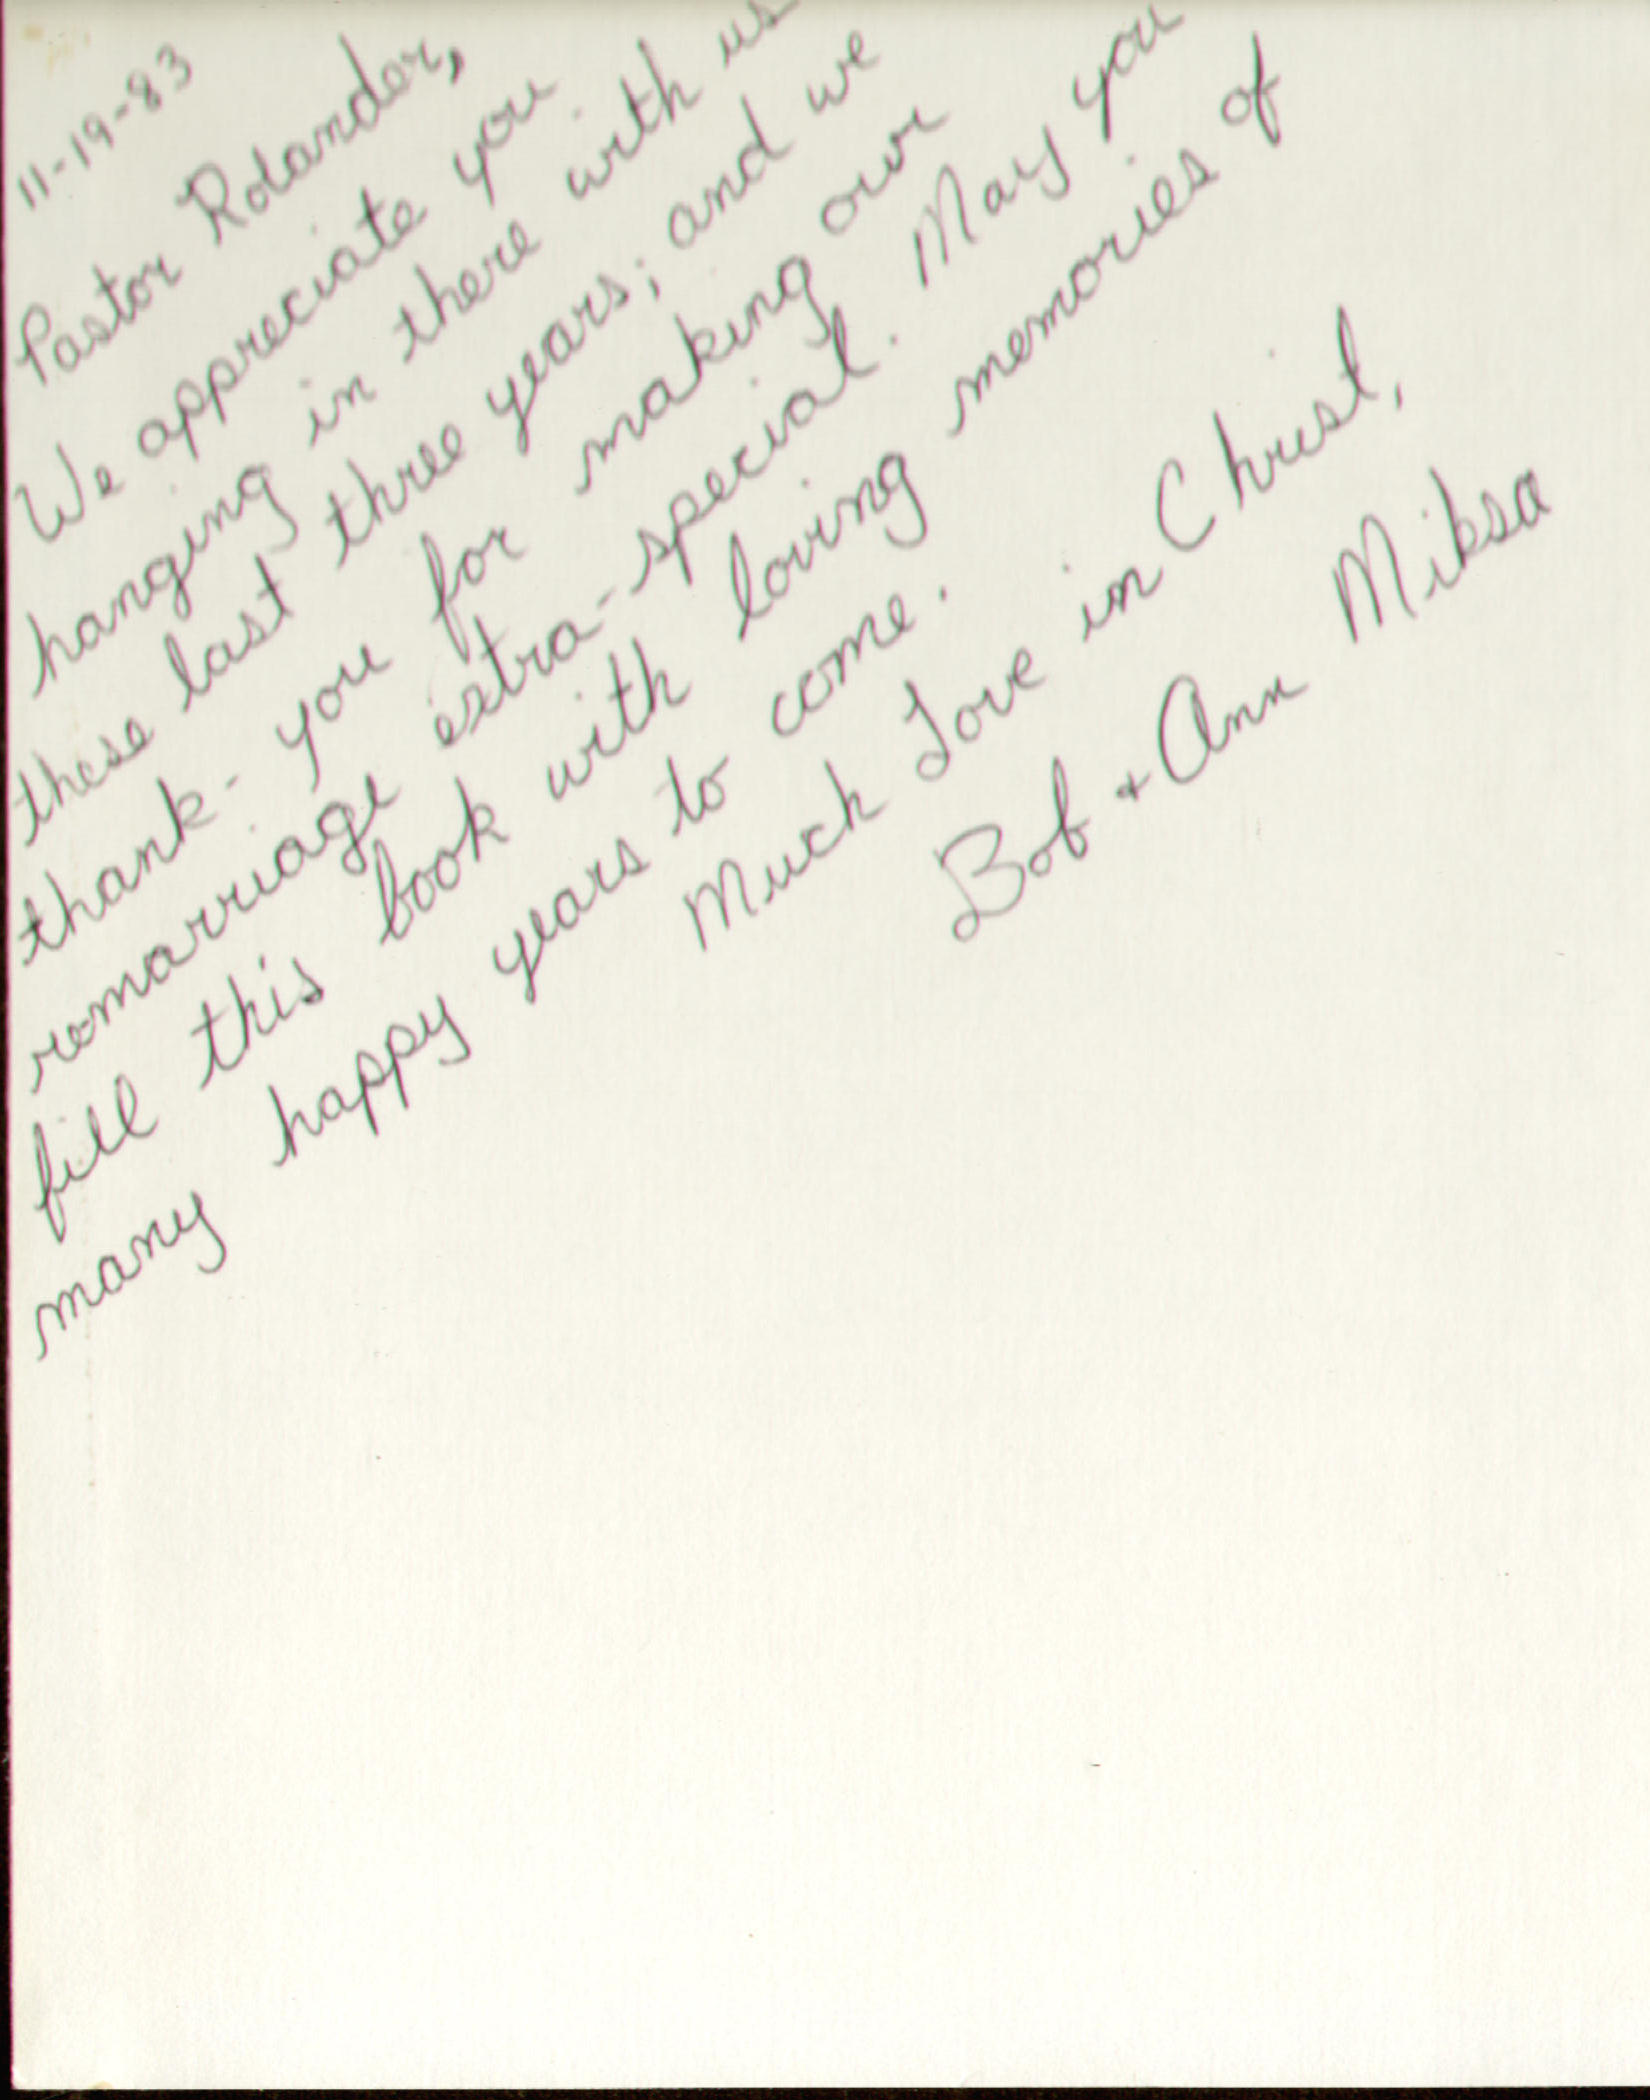 11-19-83
Pastor Rolander,
We appreciate you
hanging in there with us
these last three years; and we
thank-you for making our
remarriage extra-special. May you
fill this book with loving memories of
many happy years to come.
Much Love in Christ,
Bob + Ann Miksa